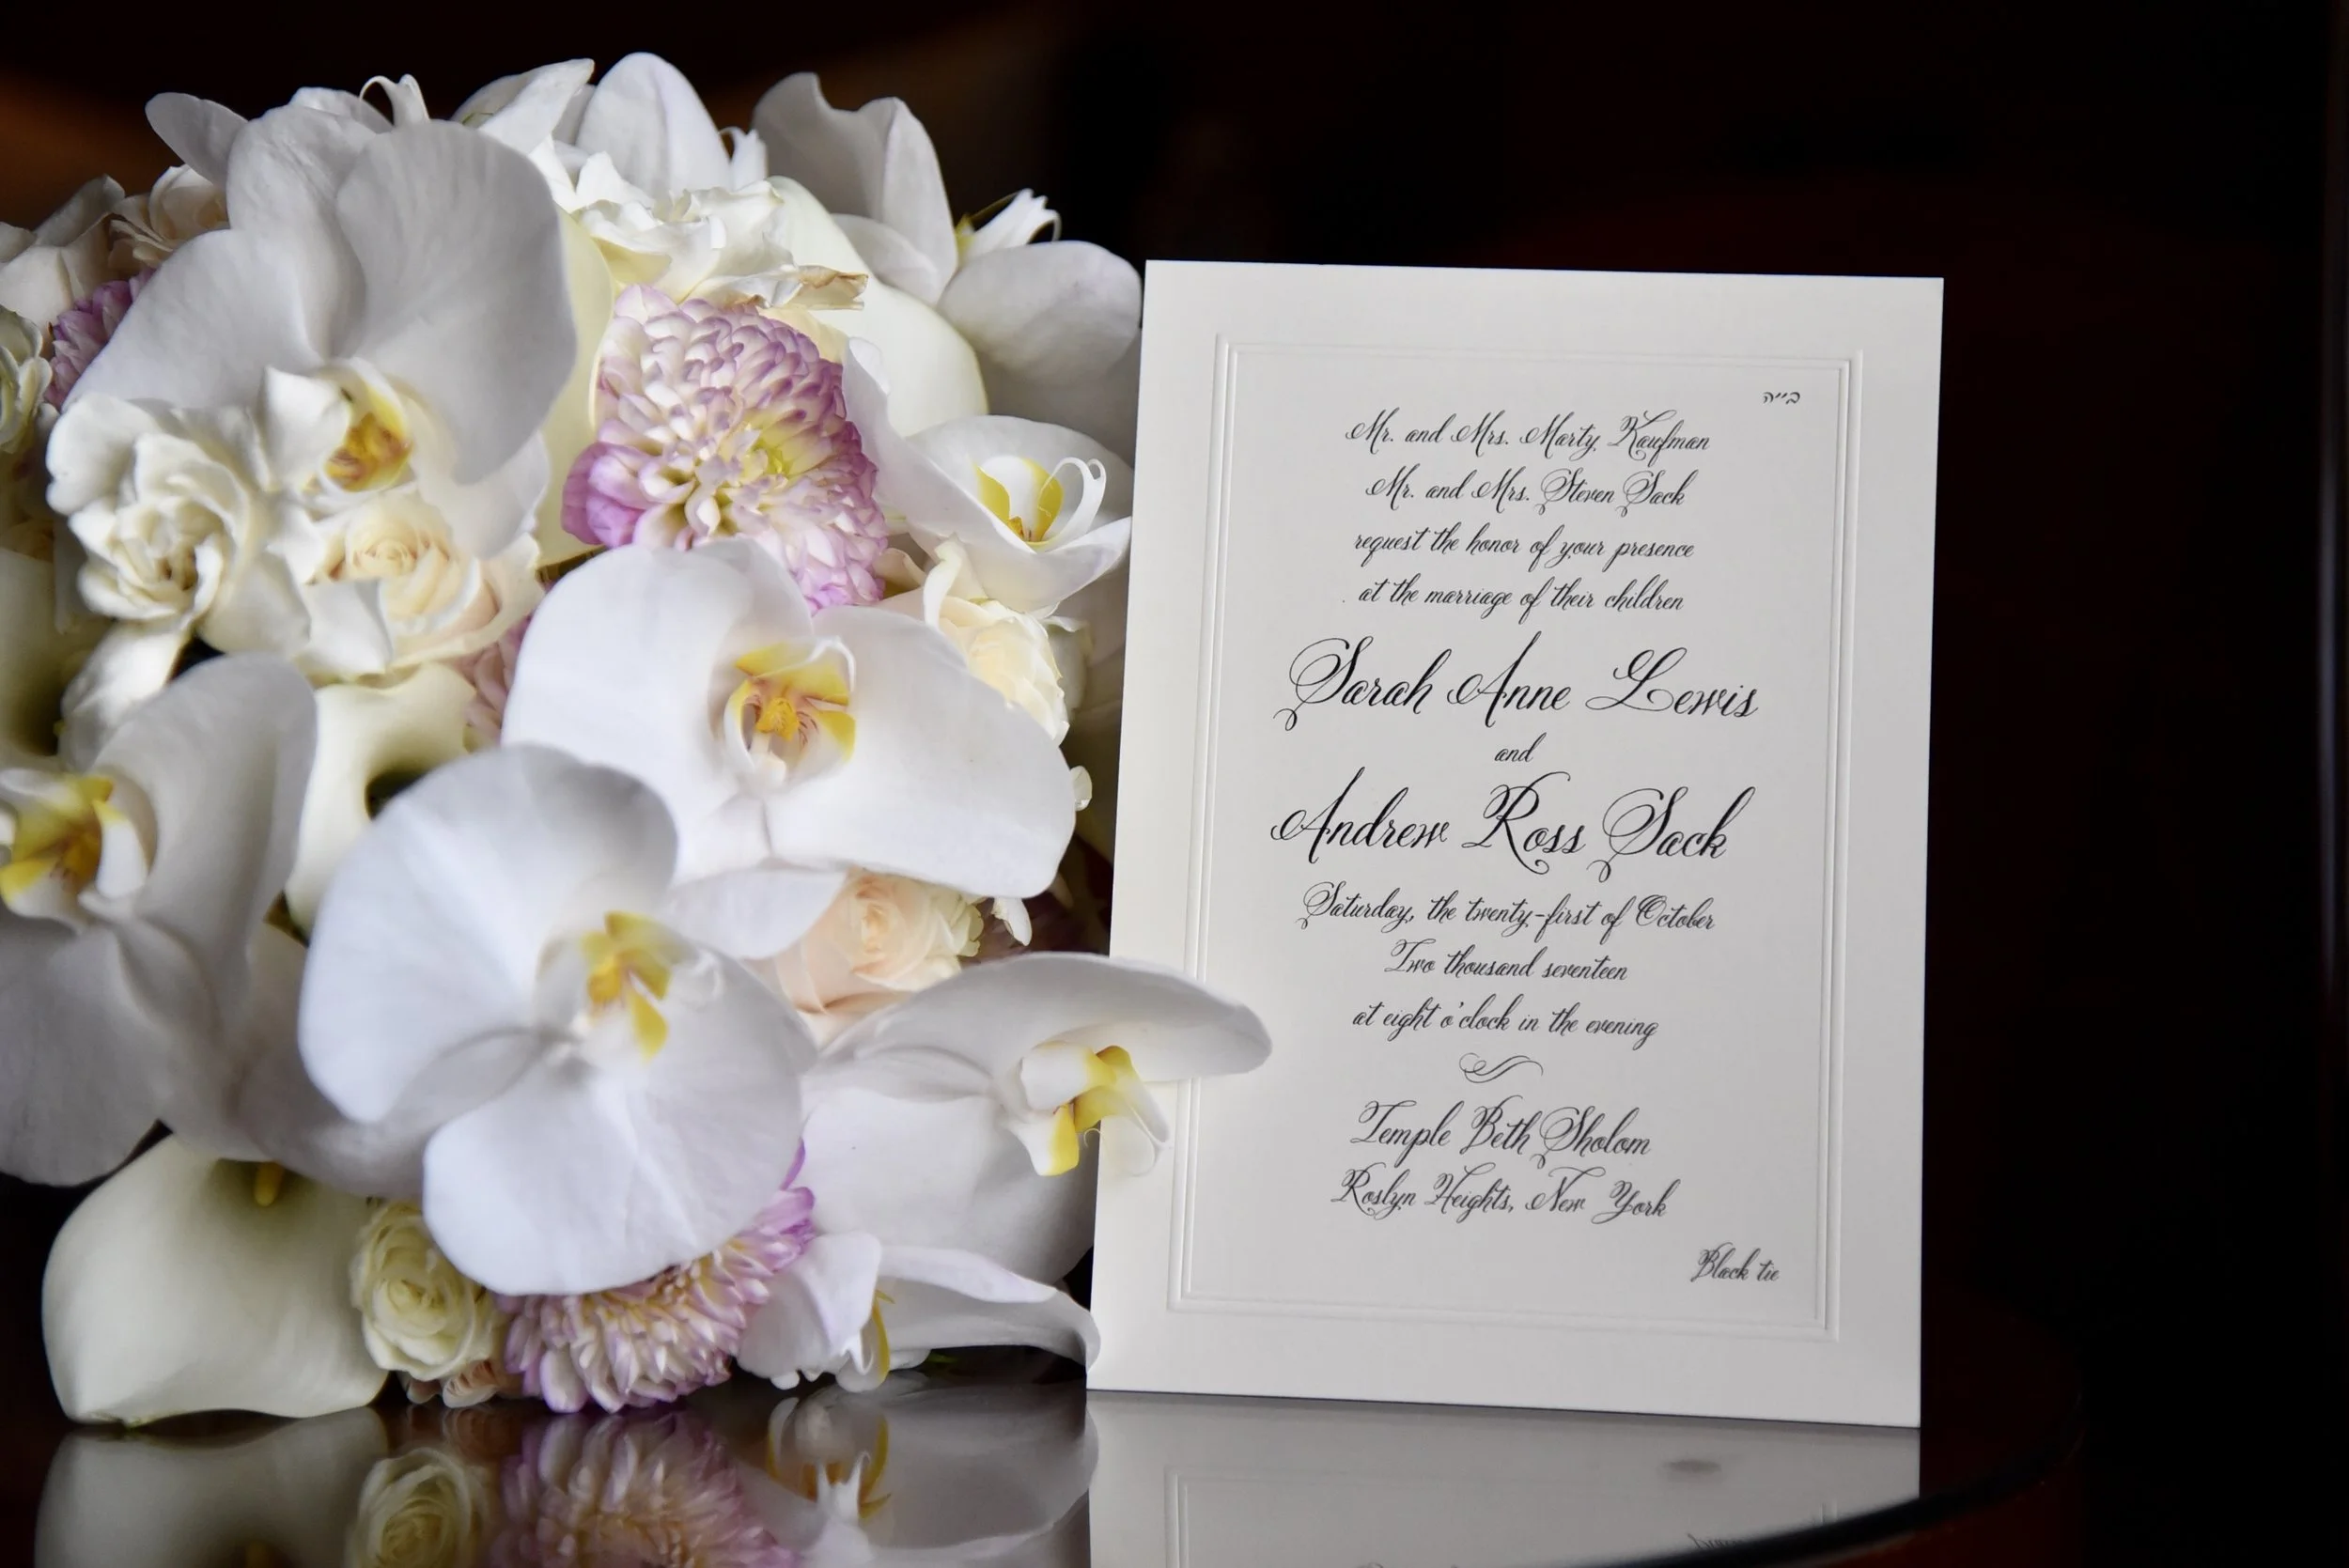 בייה
Mr. and Mrs. Marty Kaufman
Mr. and Mrs. Steven Sack
request the honor of your presence
at the marriage of their children
Sarah Anne Lewis
and
Andrew Ross Sack
Saturday, the twenty-first of October
Two thousand seventeen
at eight o'clock in the evening
Temple Beth Sholom
Roslyn Heights, New York
Black tie